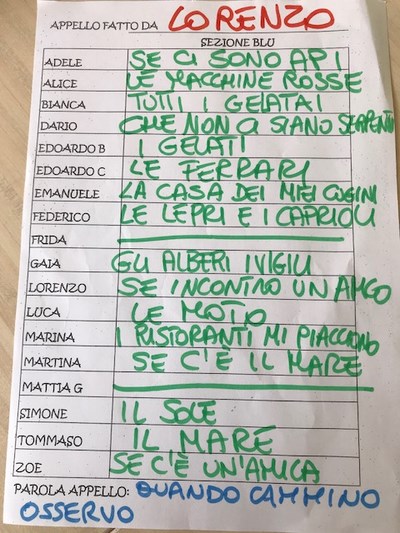 APPELLO FATTO DA LORENZO
SEZIONE BLU
ADELE SE CI SONO API
ALICE LE MACCHINE ROSSE
BIANCA TUTTI I GELATAI
DARIO CHE NON CI SIANO SERPENTI
EDOARDO B I GELATI
EDOARDO C LE FERRARI
EMANUELE LA CASA DEI MIEI CUGINI
FEDERICO LE LEPRI E I CAPRIOLI
FRIDA
GAIA GLI ALBERI I VIGILI
LORENZO SE INCONTRO UN AMICO
LUCA LE MOTO
MARINA I RISTORANTI MI PIACCIONO
MARTINA SE C'È IL MARE
MATTIA G
SIMONE IL SOLE
TOMMASO IL MARE
ZOE SE C'È UN'AMICA
PAROLA APPELLO: QUANDO CAMMINO
OSSERVO